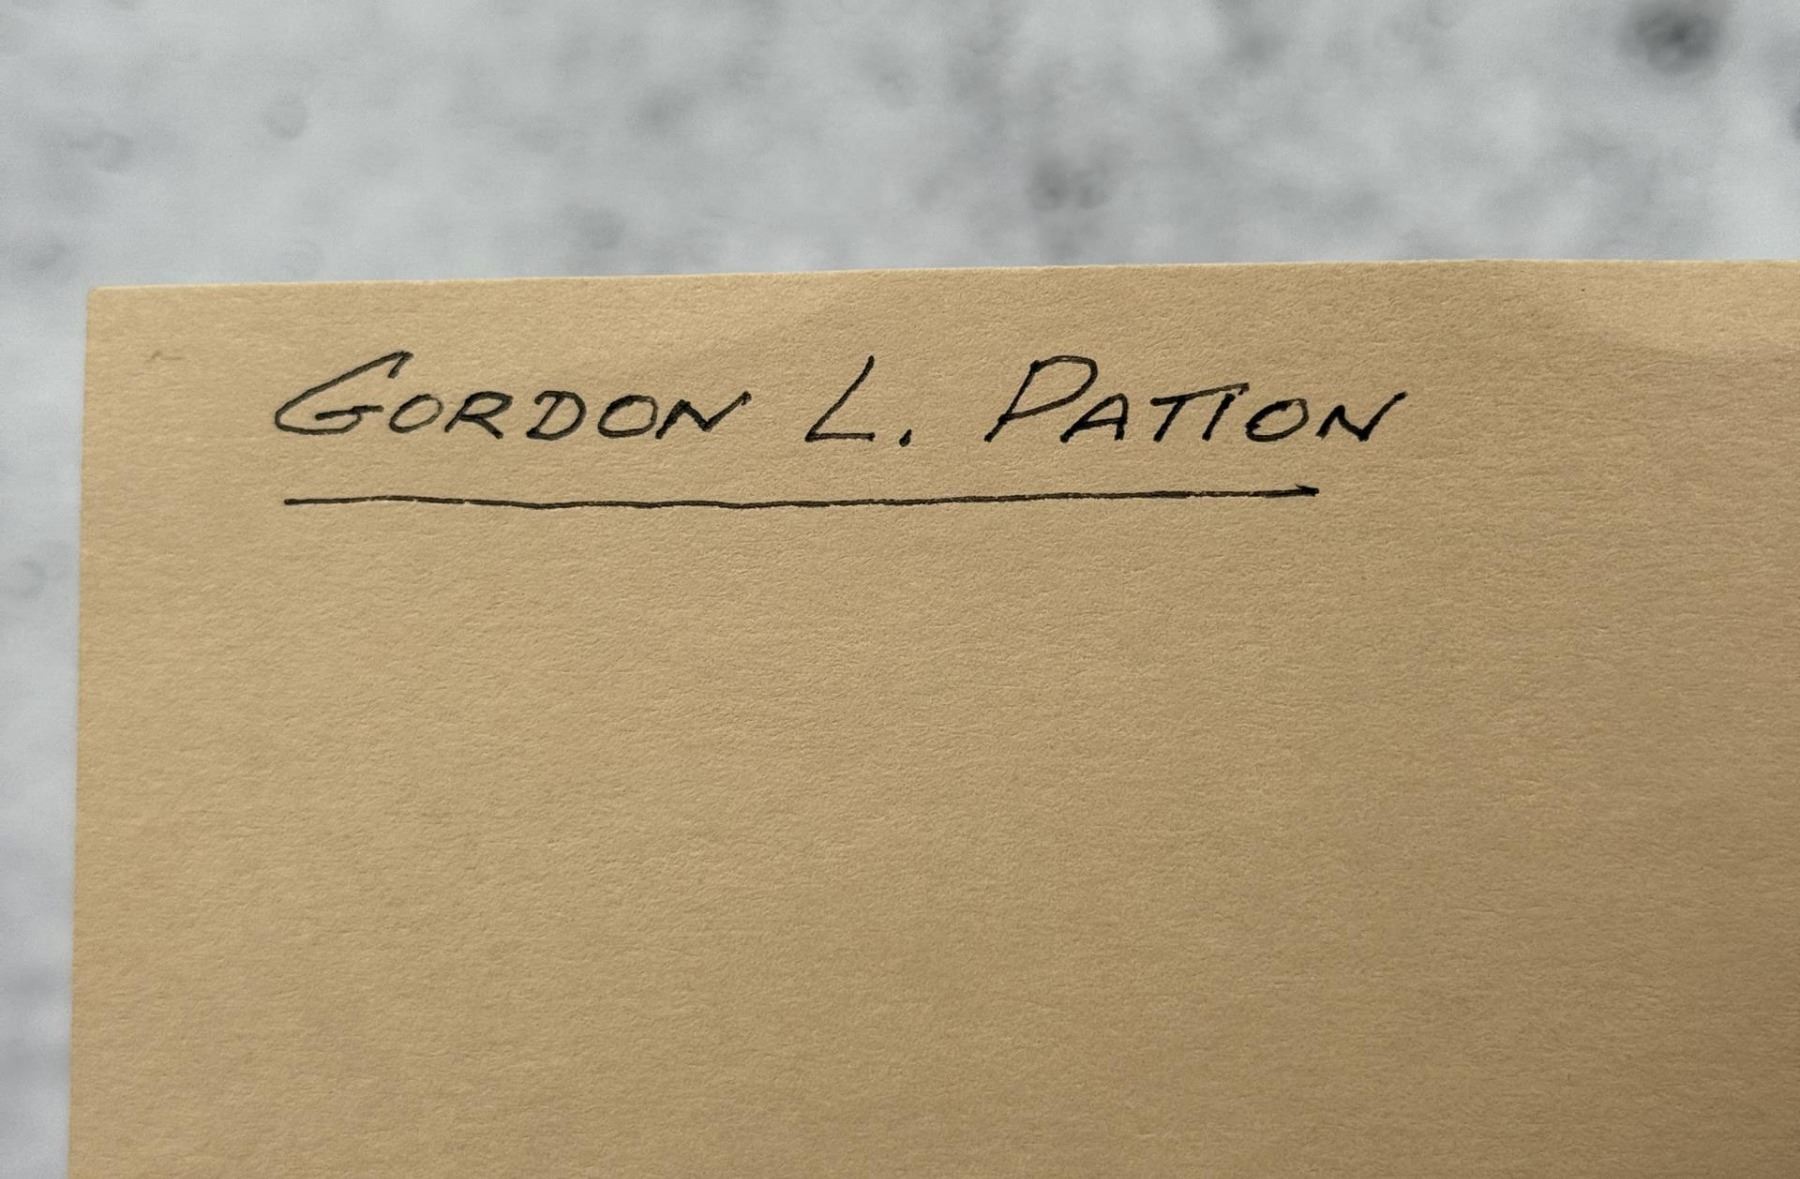 GORDON L. PATTON